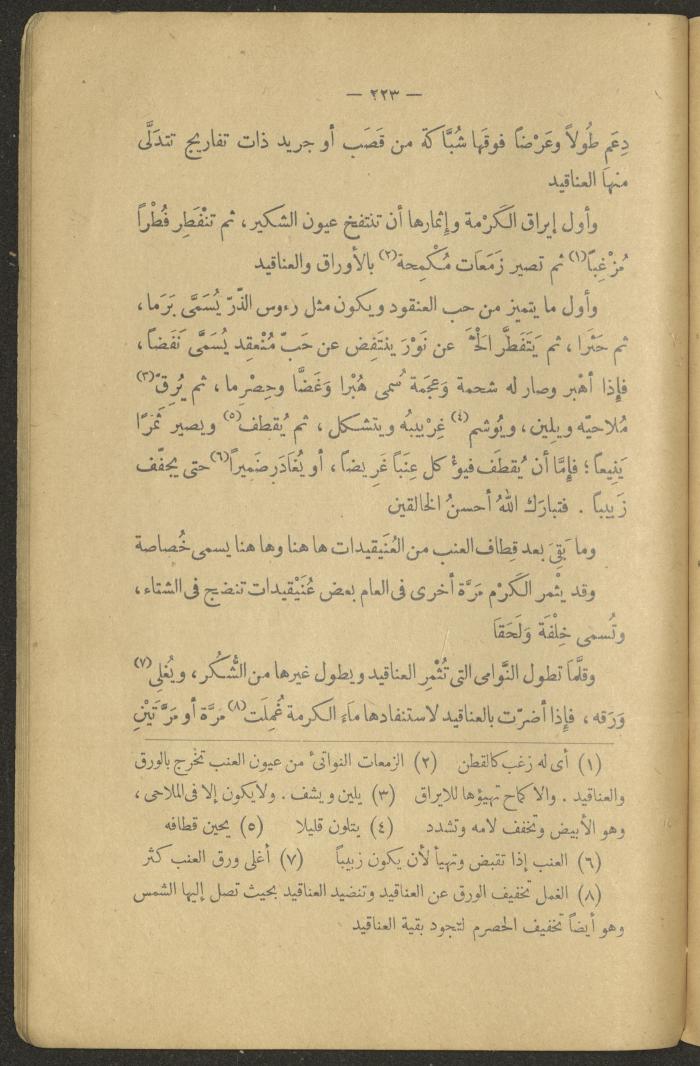 — ٢٢٣ —
دِعَم طُولاً وعَرْضاً فوقَها شُبَّاكة من قَصَب أو جريد ذات تفاريج تتدَلَّى
منها العناقيد
وأول إيراق الكَرْمة وإثمارها أن تنتفخ عيون الشكير، ثم تنْفَطِر فُطْراً
مُزْغِباً(١) ثم تصير زَمَعَات مُكْمِحة(٢) بالأوراق والعناقيد
وأول ما يتميز من حب العنقود ويكون مثل رءوس الذّرّ يُسَمَّى بَرَما،
ثم حَثَرا، ثم يَتَفَطَّر عن نَوْر ينتَفِض عن حَبّ مُنْعقِد يُسَمَّى نَفَضاً،
فإذا أهْبر وصار له شحمة وعَجَمة سُمى هُبْرا وغَضًّا وحِصْرِما، ثم يُرِقّ(٣)
مُلاحيّه ويلين، ويُوشم(٤) غِرْبيبُه ويتشكل، ثم يُقطف(٥) ويصير ثَمَرًا
يَنِيعاً؛ فإمَّا أن يُقطَف فيؤكل عِنَباً غَرِيضاً، أو يُغَادَر ضَميراً(٦) حتى يجفّف
زَبيباً . فتبارَك اللهُ أحسنُ الخالقين
وما بَقِىَ بعد قِطاف العنب من العُنَيقيدات هاهنا وهاهنا يسمى خُصاصة
وقد يثْمر الكَرْم مَرَّة أخرى فى العام بعض عُنَيْقيدات تنضج فى الشتاء،
وتُسمى خِلْفَة وَلَحَقا
وقلَّمَا تطول النَّوامى التى تُثْمِر العناقيد ويطول غيرها من الشُّكُر، ويُغلى(٧)
وَرَقه، فإذا أضرّت بالعناقيد لاستنفادها ماء الكرمة غُمِلَت(٨) مَرَّة أو مَرَّتَيْنِ
(١) أى له زغب كالقطن (٢) الزمعات النواتئ من عيون العنب تخرج بالورق
والعناقيد . والاكماح تهيؤها للايراق (٣) يلين ويشف . ولا يكون إلا فى الملاحى،
وهو الأبيض وتخفف لامه وتشدد (٤) يتلون قليلا (٥) يحين قطافه
(٦) العنب إذا تقبض وتهيأ لأن يكون زبيباً (٧) أغلى ورق العنب كثر
(٨) الغمل تخفيف الورق عن العناقيد وتنضيد العناقيد بحيث تصل إليها الشمس
وهو أيضاً تخفيف الحصرم لتجود بقية العناقيد